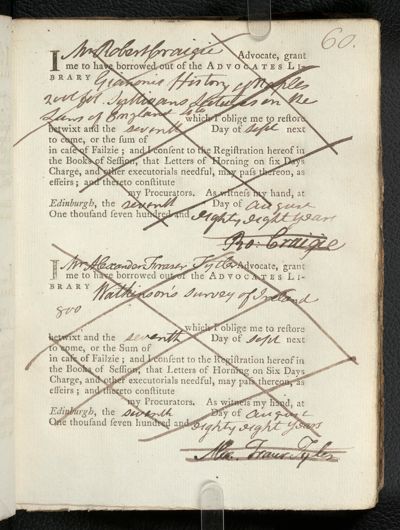 60.
I Mr Robert Craigie Advocate, grant
me to have borrowed out of the ADVOCATES LI-
BRARY Gianonis History of Naples
2 vol fol. on the
Laws of England 4to which I oblige me to restore
betwixt and the seventh Day of Sept next
to come, or the sum of
in case of Failzie; and I consent to the Registration hereof in
the Books of Session, that Letters of Horning on six Days
Charge, and other executorials needful, may pass thereon, as
effeirs; and thereto constitute
my Procurators. As witness my hand, at
Edinburgh, the seventh Day of August
One thousand seven hundred and eighty eight years
Ro: Craigie
I Mr Alexander Fraser Tytler Advocate, grant
me to have borrowed out of the ADVOCATES LI-
BRARY Watkinson's Survey of Ireland
8vo
which I oblige me to restore
betwixt and the seventh Day of Sept next
to come, or the Sum of
in case of Failzie; and I consent to the Registration hereof in
the Books of Session, that Letters of Horning on Six Days
Charge, and other executorials needful, may pass thereon, as
effeirs; and thereto constitute
my Procurators. As witness my hand, at
Edinburgh, the seventh Day of August
One thousand seven hundred and eighty eight years
Alex. Fraser Tytler